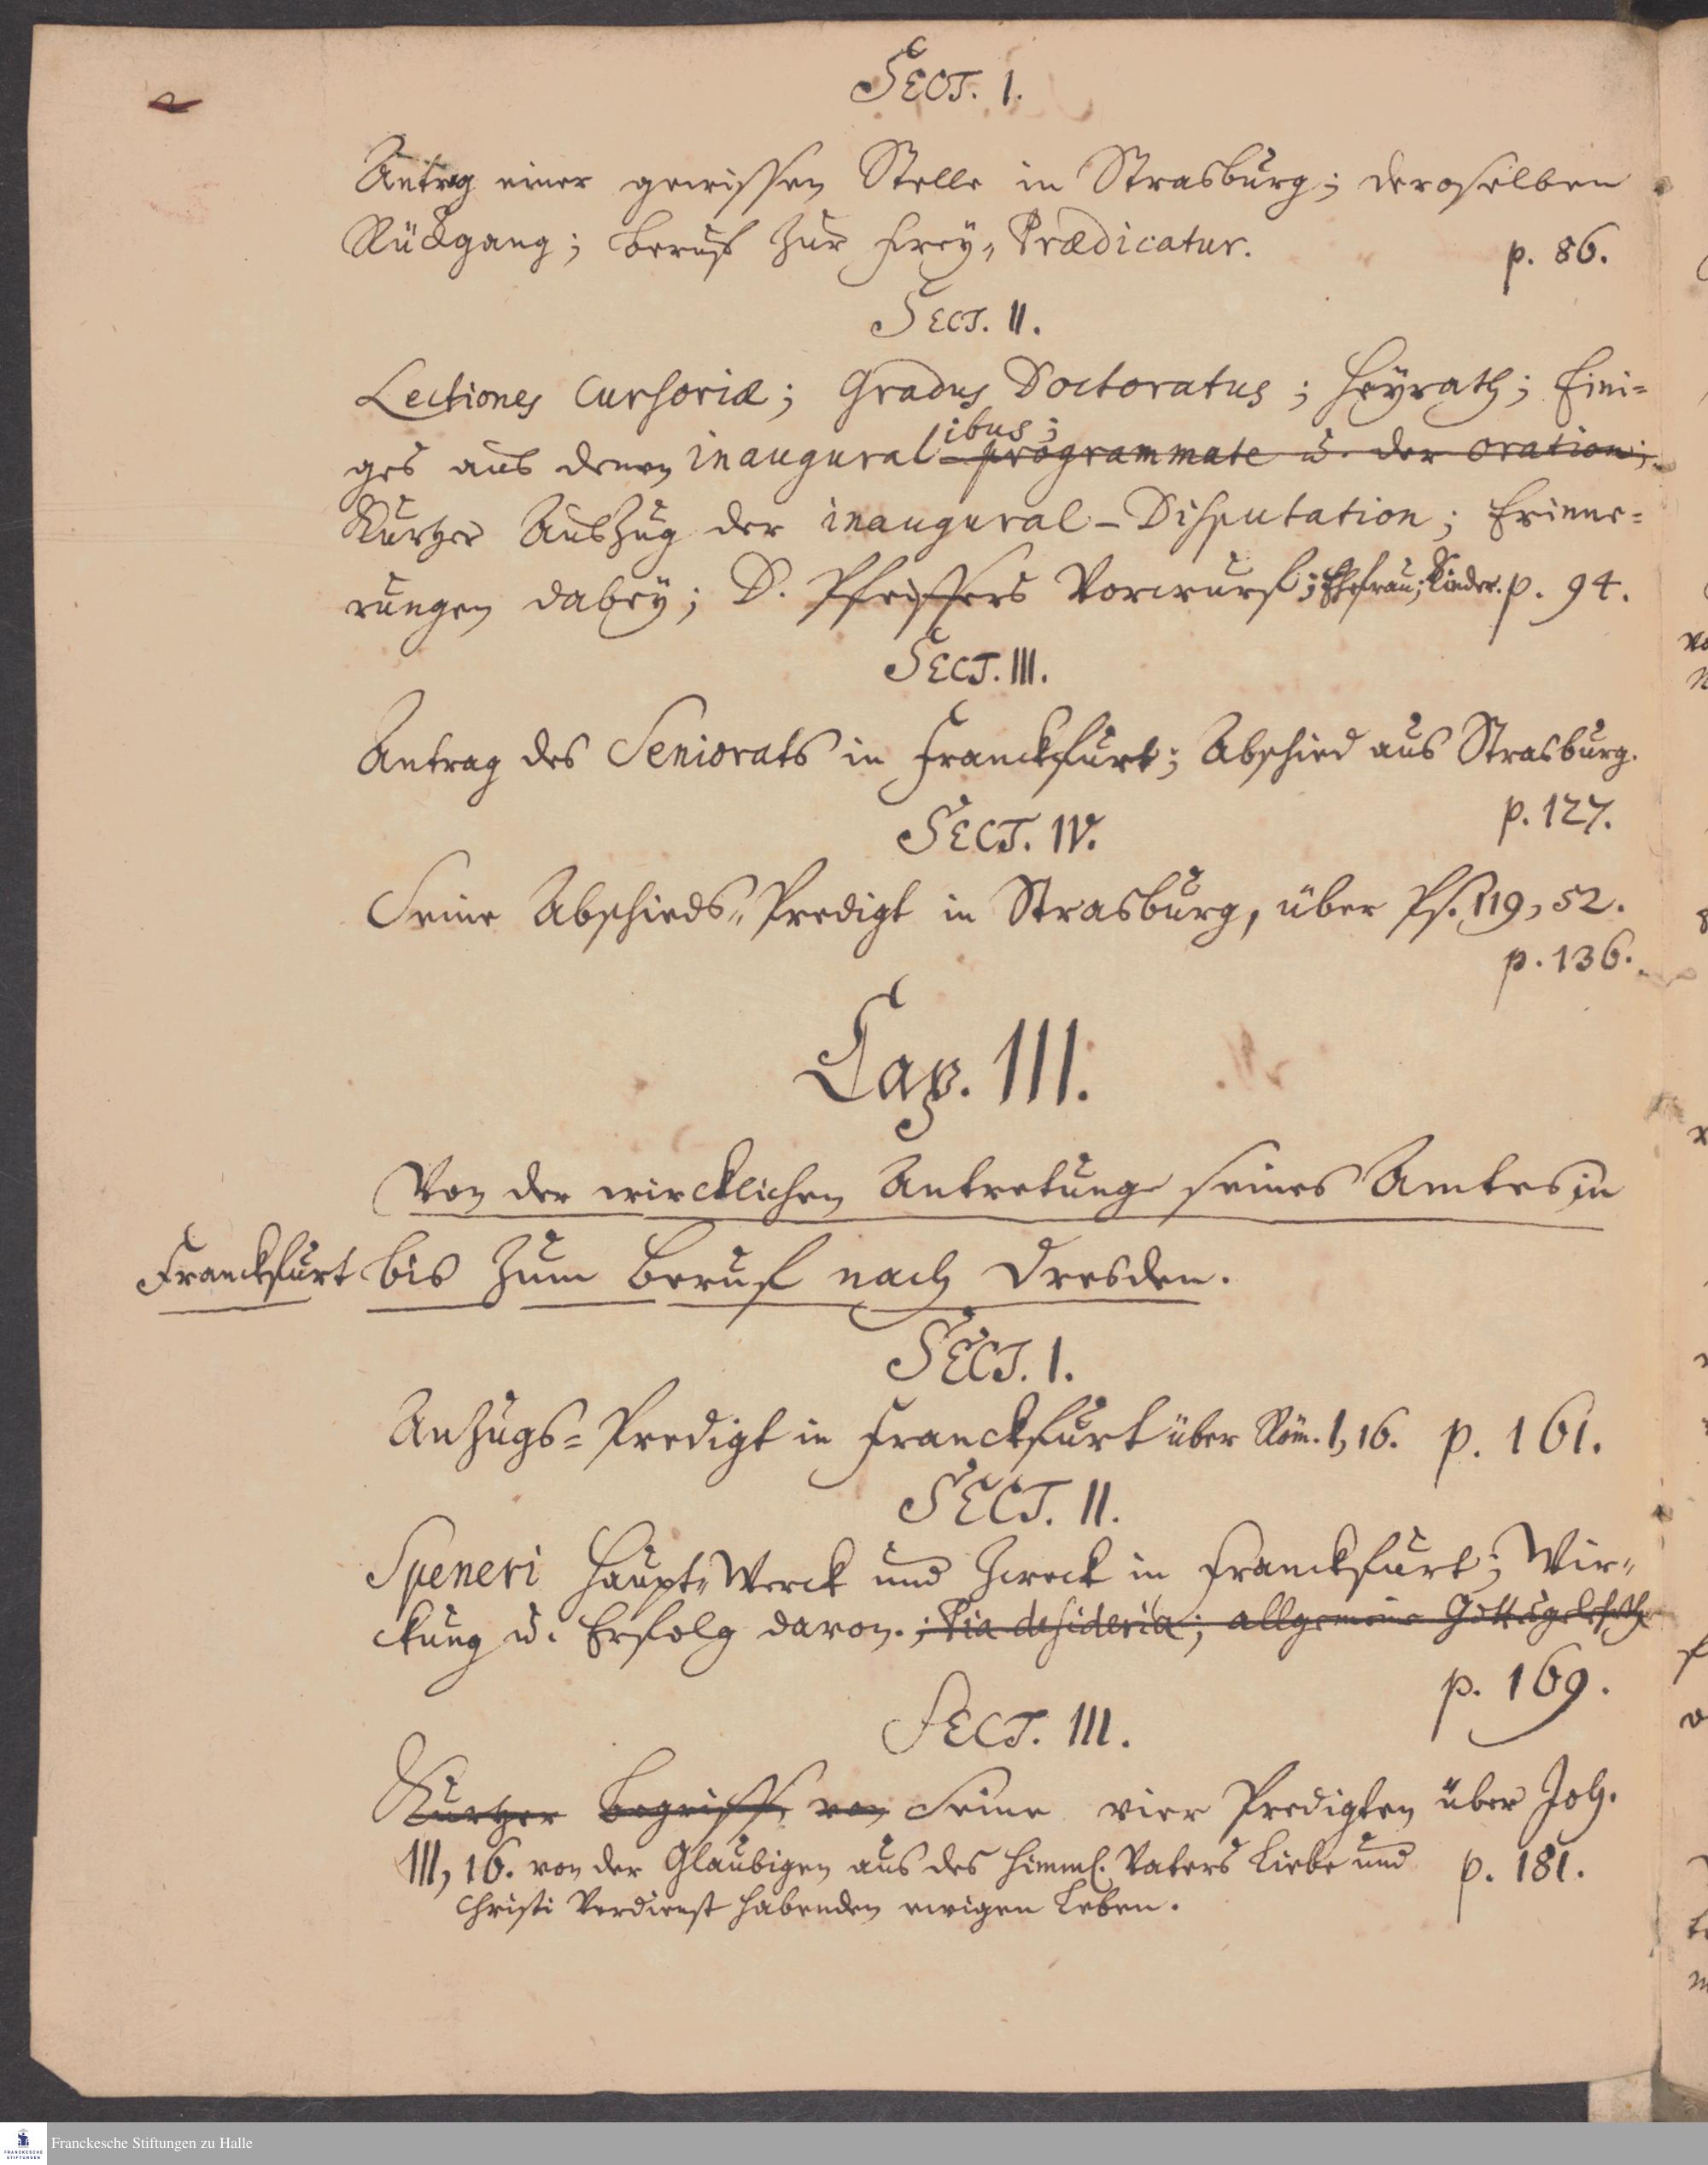 Sect. I.
Antrag einer gewissen Stelle in Strasburg; deroselben
Rückgang; Beruf zur Frey-Prædicatur.
p. 86.
Sect. II.
Lectiones Cursoriæ; Gradus Doctoratus; Heyrath; Eini=
ges aus denen inauguralibus; programmate u. der oration;
Kurtzer Auszug der inaugural-Disputation; Erinne=
rungen dabey; D. Pfeiffers Vorwurf; Ehefrau; Kinder. p. 94.
Sect. III.
Antrag des Seniorats in Franckfurt; Abschied aus Strasburg.
p. 127.
Sect. IV.
Seine Abschieds-Predigt in Strasburg, über Ps. 119, 52.
p. 136.
Cap. III.
Von der wircklichen Antretung seines Amtes in
Franckfurt bis zum Beruf nach Dresden.
Sect. I.
Anzugs=Predigt in Franckfurt über Röm. 1, 16. p. 161.
Sect. II.
Speneri Haupt-Werck und Zweck in Franckfurt; Wir-
ckung u. Erfolg davon.; Pia desideria; allgemeine Gottesgelehrth
p. 169.
Sect. III.
Kurtzer Begriff von Seine vier Predigten über Joh.
III, 16. von der Glaubigen aus des himml. Vaters Liebe und p. 181.
Christi Verdienst habenden ewigen Leben.
Franckesche Stiftungen zu Halle
FRANCKESCHE
STIFTUNGEN